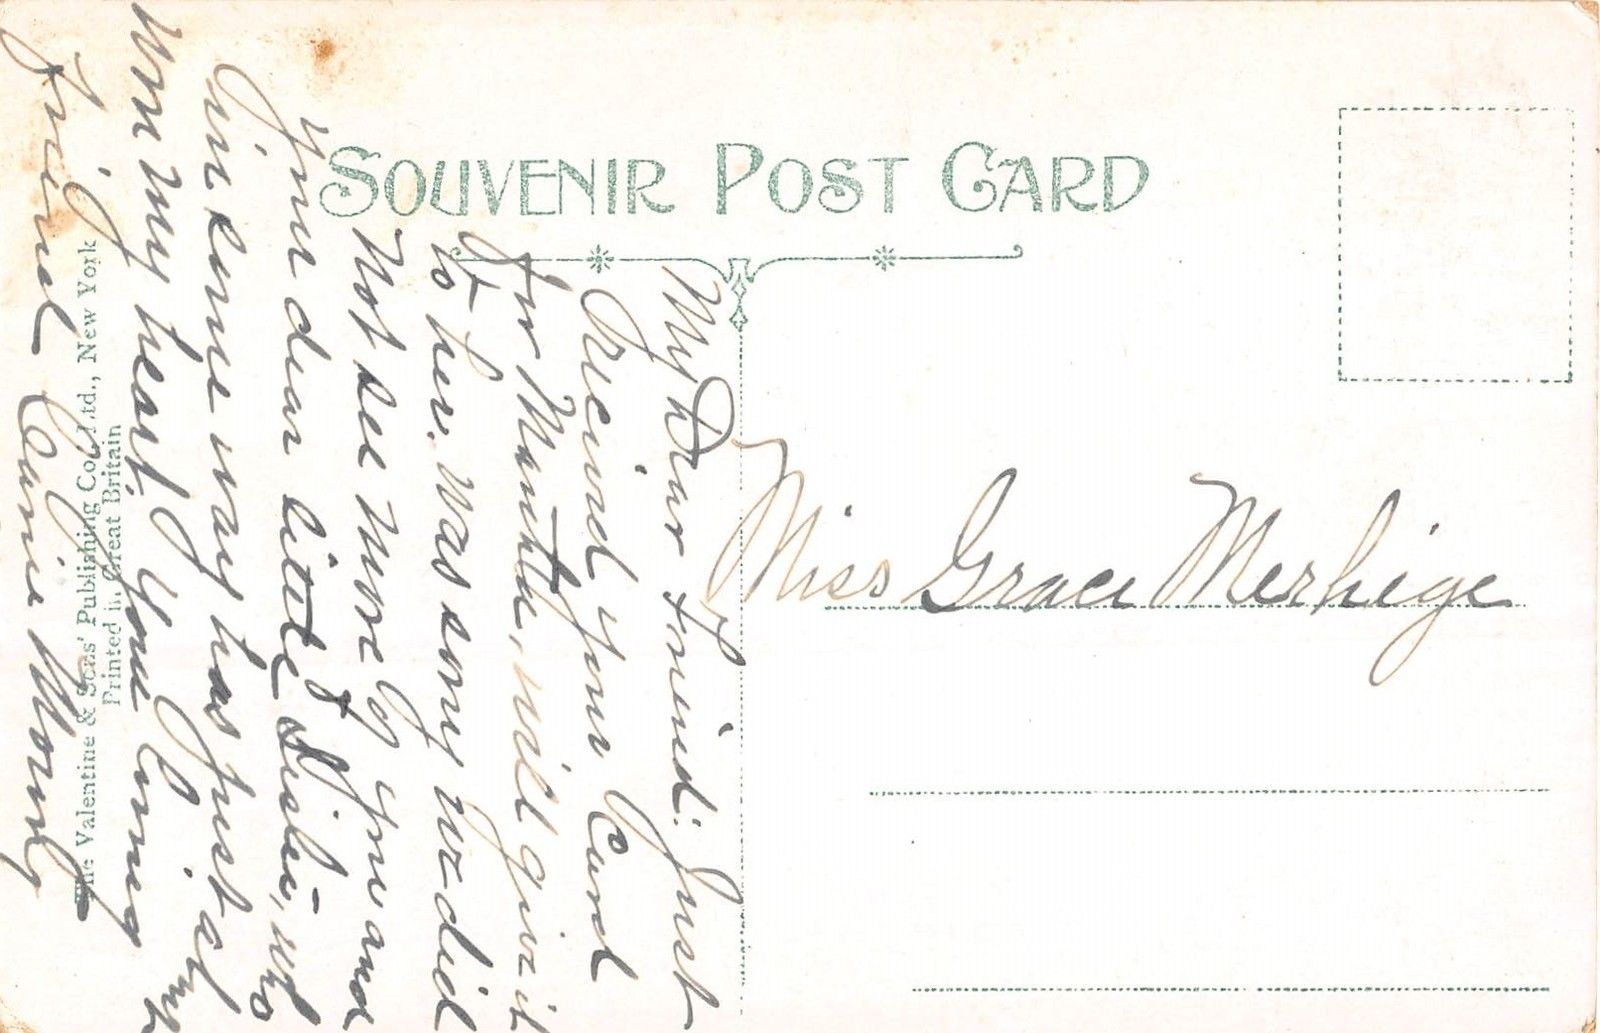 SOUVENIR POST CARD
My Dear Friend: Just
Received your Card
for Martha, will give it
to her. Was sorry we did
not see more of you and
your dear little Sister, who
in some way has just al
won my heart. Your loving
Friend Carrie Young
Miss Grace Merhige
The Valentine & Sons' Publishing Co., Ltd., New York
Printed in Great Britain